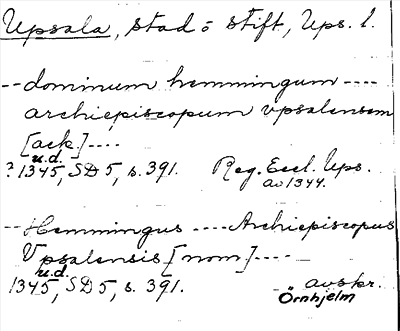 Upsala, stad o stift, Ups. l.
-- dominum hemmingum ----
archiepiscopum vpsalensem
[ack.] ----
u.d.
? 1345, SD 5, s. 391. Reg. Eccl. Ups.
av 1344.
-- Hemmingus ---- Archiepiscopus
Vpsalensis [nom] ----
u.d.
1345, SD 5, s. 391. avskr.
Örnhjelm